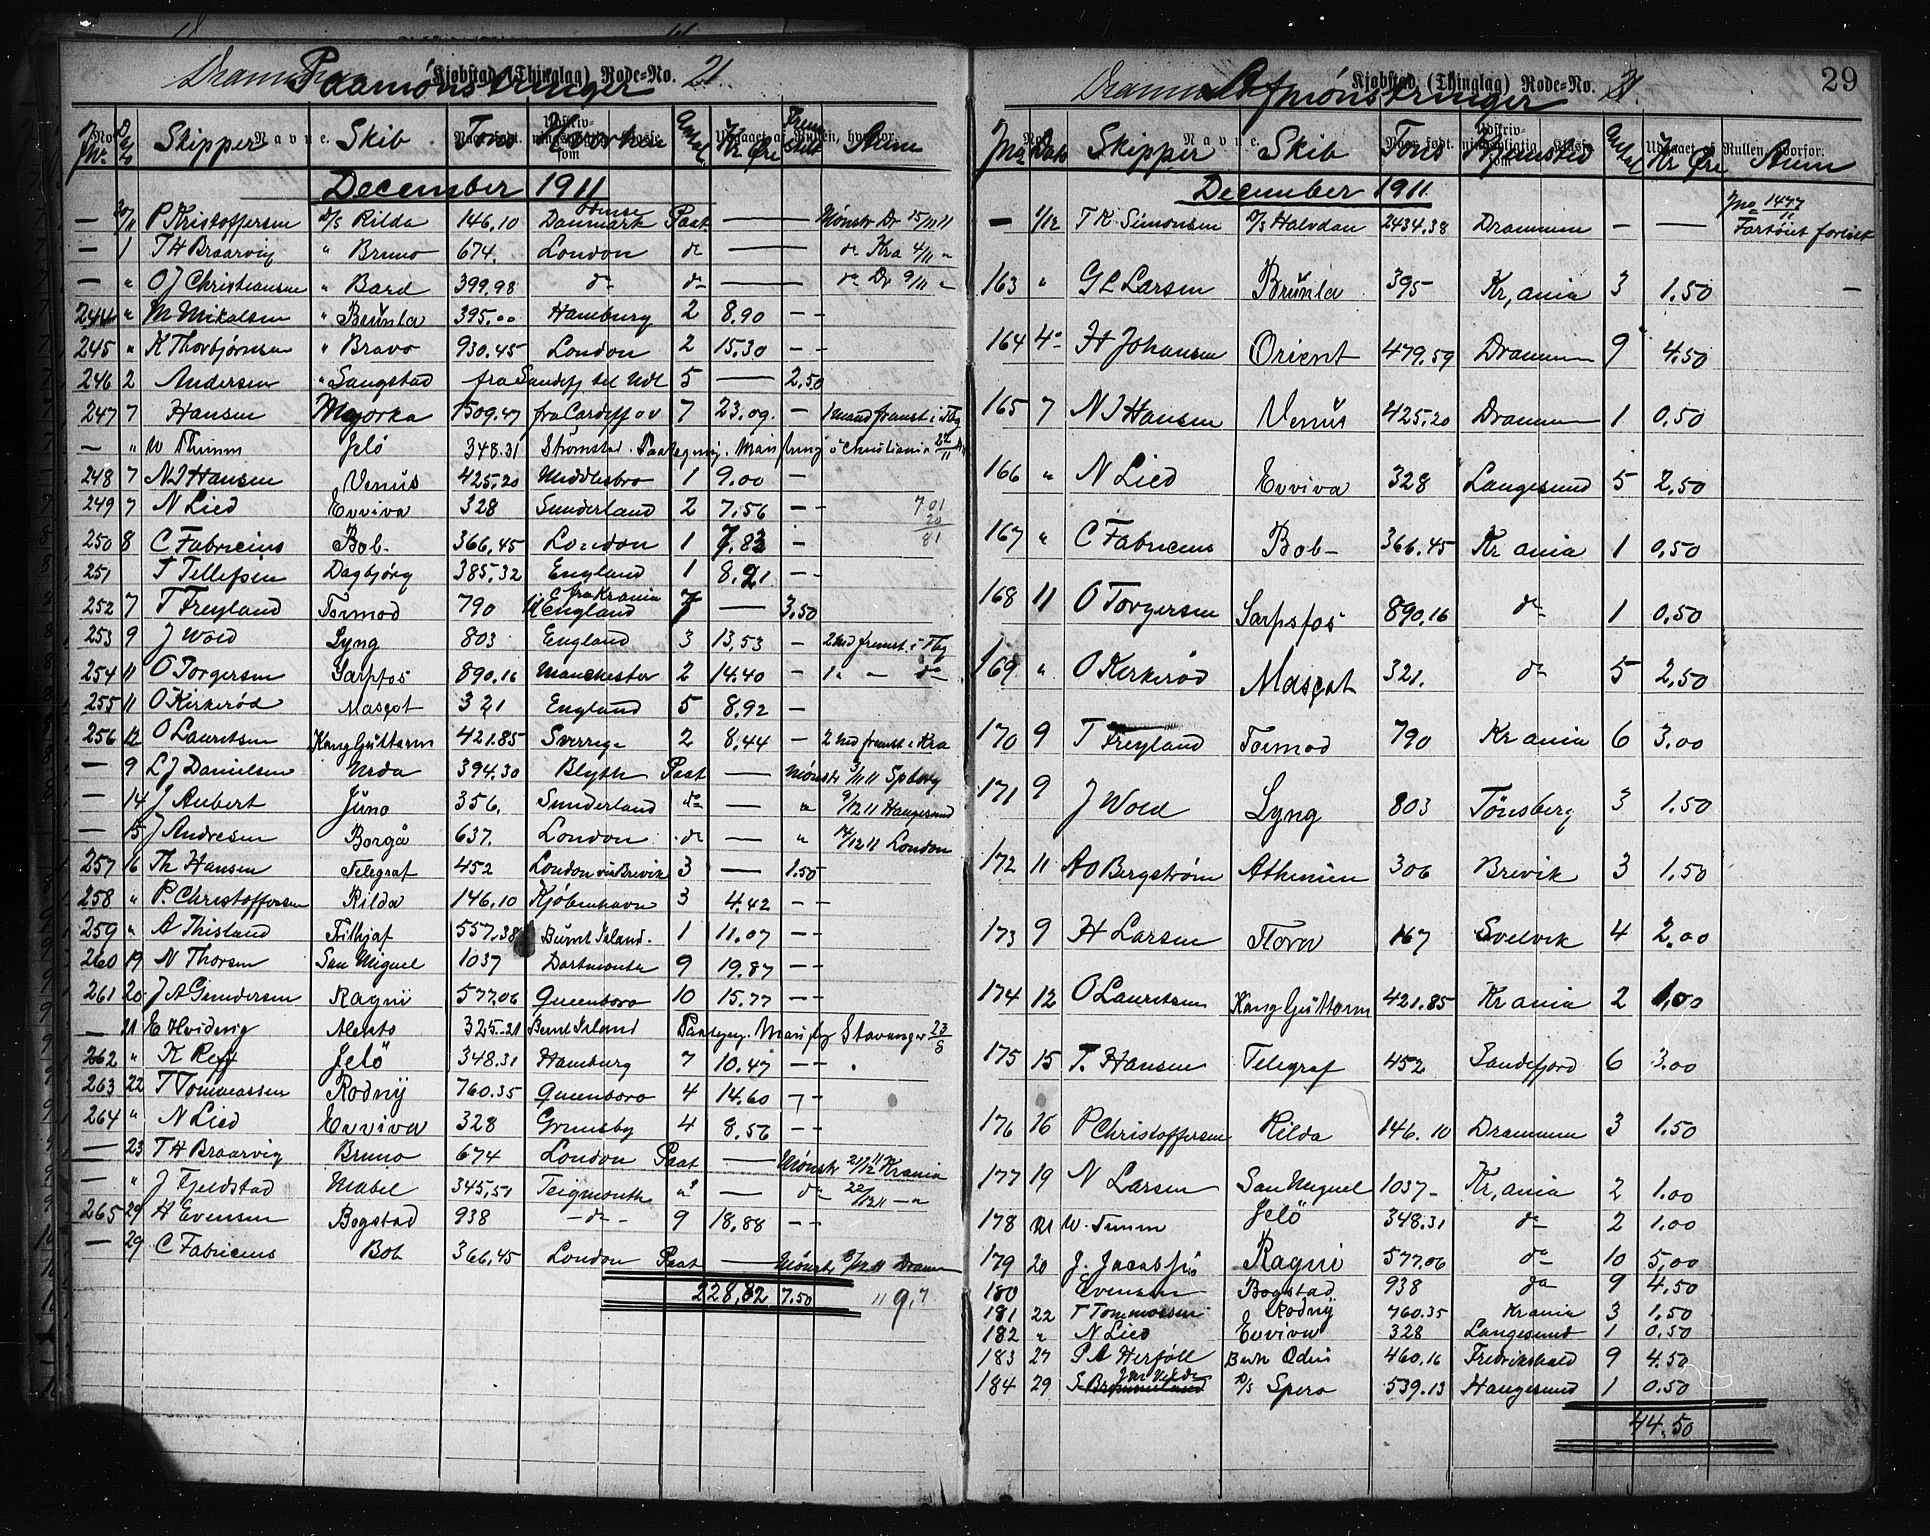 Drammen Kjøbstad (Thinglag) Rode-No. 21
Paamønstringer
Jno Dato Skipper Skib Tons Hvorhen Antal Kr Øre Anm
December 1911
— 30/11 P Kristoffersen D/S Rilda 146.10 Odense Danmark Paat — Mønstr Dr 25/11 11
— 1 T H Braarvig " Bruno 674. London do — do Kra 4/11 "
— " O J Christiansen " Bard 399.98 do do — do Dr 9/11 "
244 " M Mikalsen " Brunla 395.00 Hamburg 2 8.90 —
245 " K Thorbjørnsen " Bravo 930.45 London 2 15.30 —
246 2 Andersen " Sangstad fra Sandefj til Udl 5 — 2.50
247 7 Hansen Majorka 1509.47 fra Cardiff o v 7 23.09. — 1 mand fremst i Tbg
— " W Thimm Jelö 348.31 Strømstad. Paategning. Mønstring i Christiania
248 7 N J Hansen Venus 425.20 Middlesbro 1 9.00 —
249 7 N Lied Evviva 328 Sunderland 2 7.56 — 7 01
20
250 8 C Fabricius Bob. 366.45 London 1 7.83 — 81
251 T Tellefsen Dagbjørg 385.32 England 1 8.21 —
252 7 T Freyland Tormod 790 fra Krania til England 7 — 3.50
253 9 J Wold Lyng 803 England 3 13.53 — 2 md fremst. i Tbg
254 11 O Torgersen Sarpfos 890.16 Manchester 2 14.40 — 1 " — do
255 11 O Kirkerød Mascot 321 England 5 8.92 —
256 12 O Lauritsen Kong Guttorm 421.85 Sverrige 2 8.44 — 2 md fremst i Kra
— 9 L J Danielsen Urda 394.30 Blyth Paat — Mønstr 3/11 11 Spborg
— 14 J Aubert Juno 356. Sunderland do — " 9/12 11 Haugesund
— 15 J Andresen Borgå 637. London do — " 14/12 11 London
257 16 Th Hansen Telegraf 452 London via Brevik 3 — 1.50
258 " P. Christoffersen Rilda 146.10 Kjøbenhavn 3 4.42 —
259 " A Thisland Frithjof 557.38 Burnt Island. 1 11.07 —
260 19 N Thorsen San Miguel 1037 Dartmouth 9 19.87 —
261 20 J A Gundersen Ragni 577.06 Queenboro 10 15.77 —
— 21 E Hvidevig Alento 325.21 Burnt Island Paategng. Mønstrg Stavanger 23/8
262 " K Reff Jelö 348.31 Hamburg 7 10.47 —
263 22 T Tommassen Rodny 760.35 Queenboro 4 14.60 —
264 " N Lied Evviva 328 Grimsby 4 8.56 —
— 23 T H Braarvig Bruno 674 London Paat — Mønstr 21/12 11 Krania
— " J Fjeldstad Mabel 345.51 Teigmouth do — do 22/12 11 — "
265 29 H Evensen Bogstad 938 — do — 9 18.88 —
— 29 C Fabricius Bob 366.45 London Paat — Mønstr 8/12 11 Dramn
228,82 7.50 119.7
29
Drammen Kjøbstad (Thinglag) Rode-No. 21
Afmønstringer
Jno Dato Skipper Skib Tons Hjemsted Antal Kr Øre Anm
December 1911
— 1/12 T K Simonsen D/S Halvdan 2434.38 Drammen — — Jno 1477/11 Fartöiet forlist
163 " G L Larsen Brunla 395 Kr,ania 3 1.50 —
164 4 H Johansen Orient 479.59 Drammen 9 4.50
165 7 N J Hansen Venus 425.20 Drammen 1 0.50
166 " N Lied Evviva 328 Langesund 5 2.50
167 " C Fabricius Bob 366.45 Kr ania 1 0.50
168 11 O Torgersen Sarpsfos 890.16 do 1 0.50
169 " O Kirkerød Mascot 321. do 5 2.50
170 9 T Freyland Tormod 790 Kr ania 6 3.00
171 9 J Wold Lyng 803 Tönsberg 3 1.50
172 11 A O Bergstrøm Athenien 306 Brevik 3 1.50
173 9 H Larsen Flora 167 Svelvik 4 2.00
174 12 O Lauritsen Kong Guttorm 421.85 Kr ania 2 1.00
175 15 T. Hansen Telegraf 452 Sandefjord 6 3.00
176 16 P Christoffersen Rilda 146.10 Drammen 3 1.50
177 19 N Larsen San Miguel 1037 Kr,ania 2 1.00
178 21 W. Timm Jelö 348.31 do 2 1.00
179 20 J. Jacobsen Ragni 577.06 do 10 5,00
180 Evensen Bogstad 938 do 9 4.50
181 22 T Tommassen Rodny 760.35 Krania 3 1.50
182 " N Lied Evviva 328 Langesund 1 0.50
183 27 P A Herföll Bark Oder 460.16 Fredrikshald 9 4.50
184 29 D/S Spero 539.13 Haugesund 1 0.50
44.50